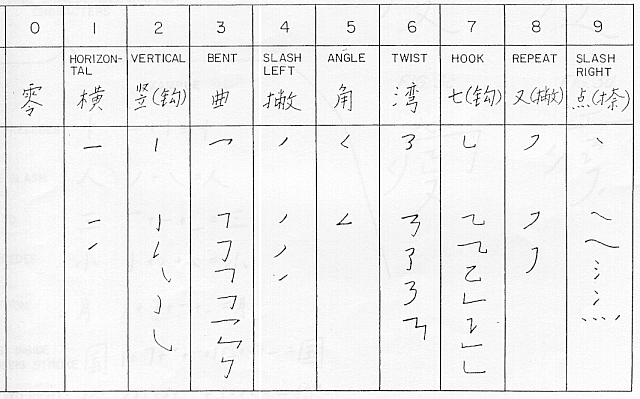 0 1 2 3 4 5 6 7 8 9
HORIZON- VERTICAL BENT SLASH ANGLE TWIST HOOK REPEAT SLASH
TAL LEFT RIGHT
零 横 竖(钩) 曲 撇 角 湾 七(钩) 又(撇) 点(捺)